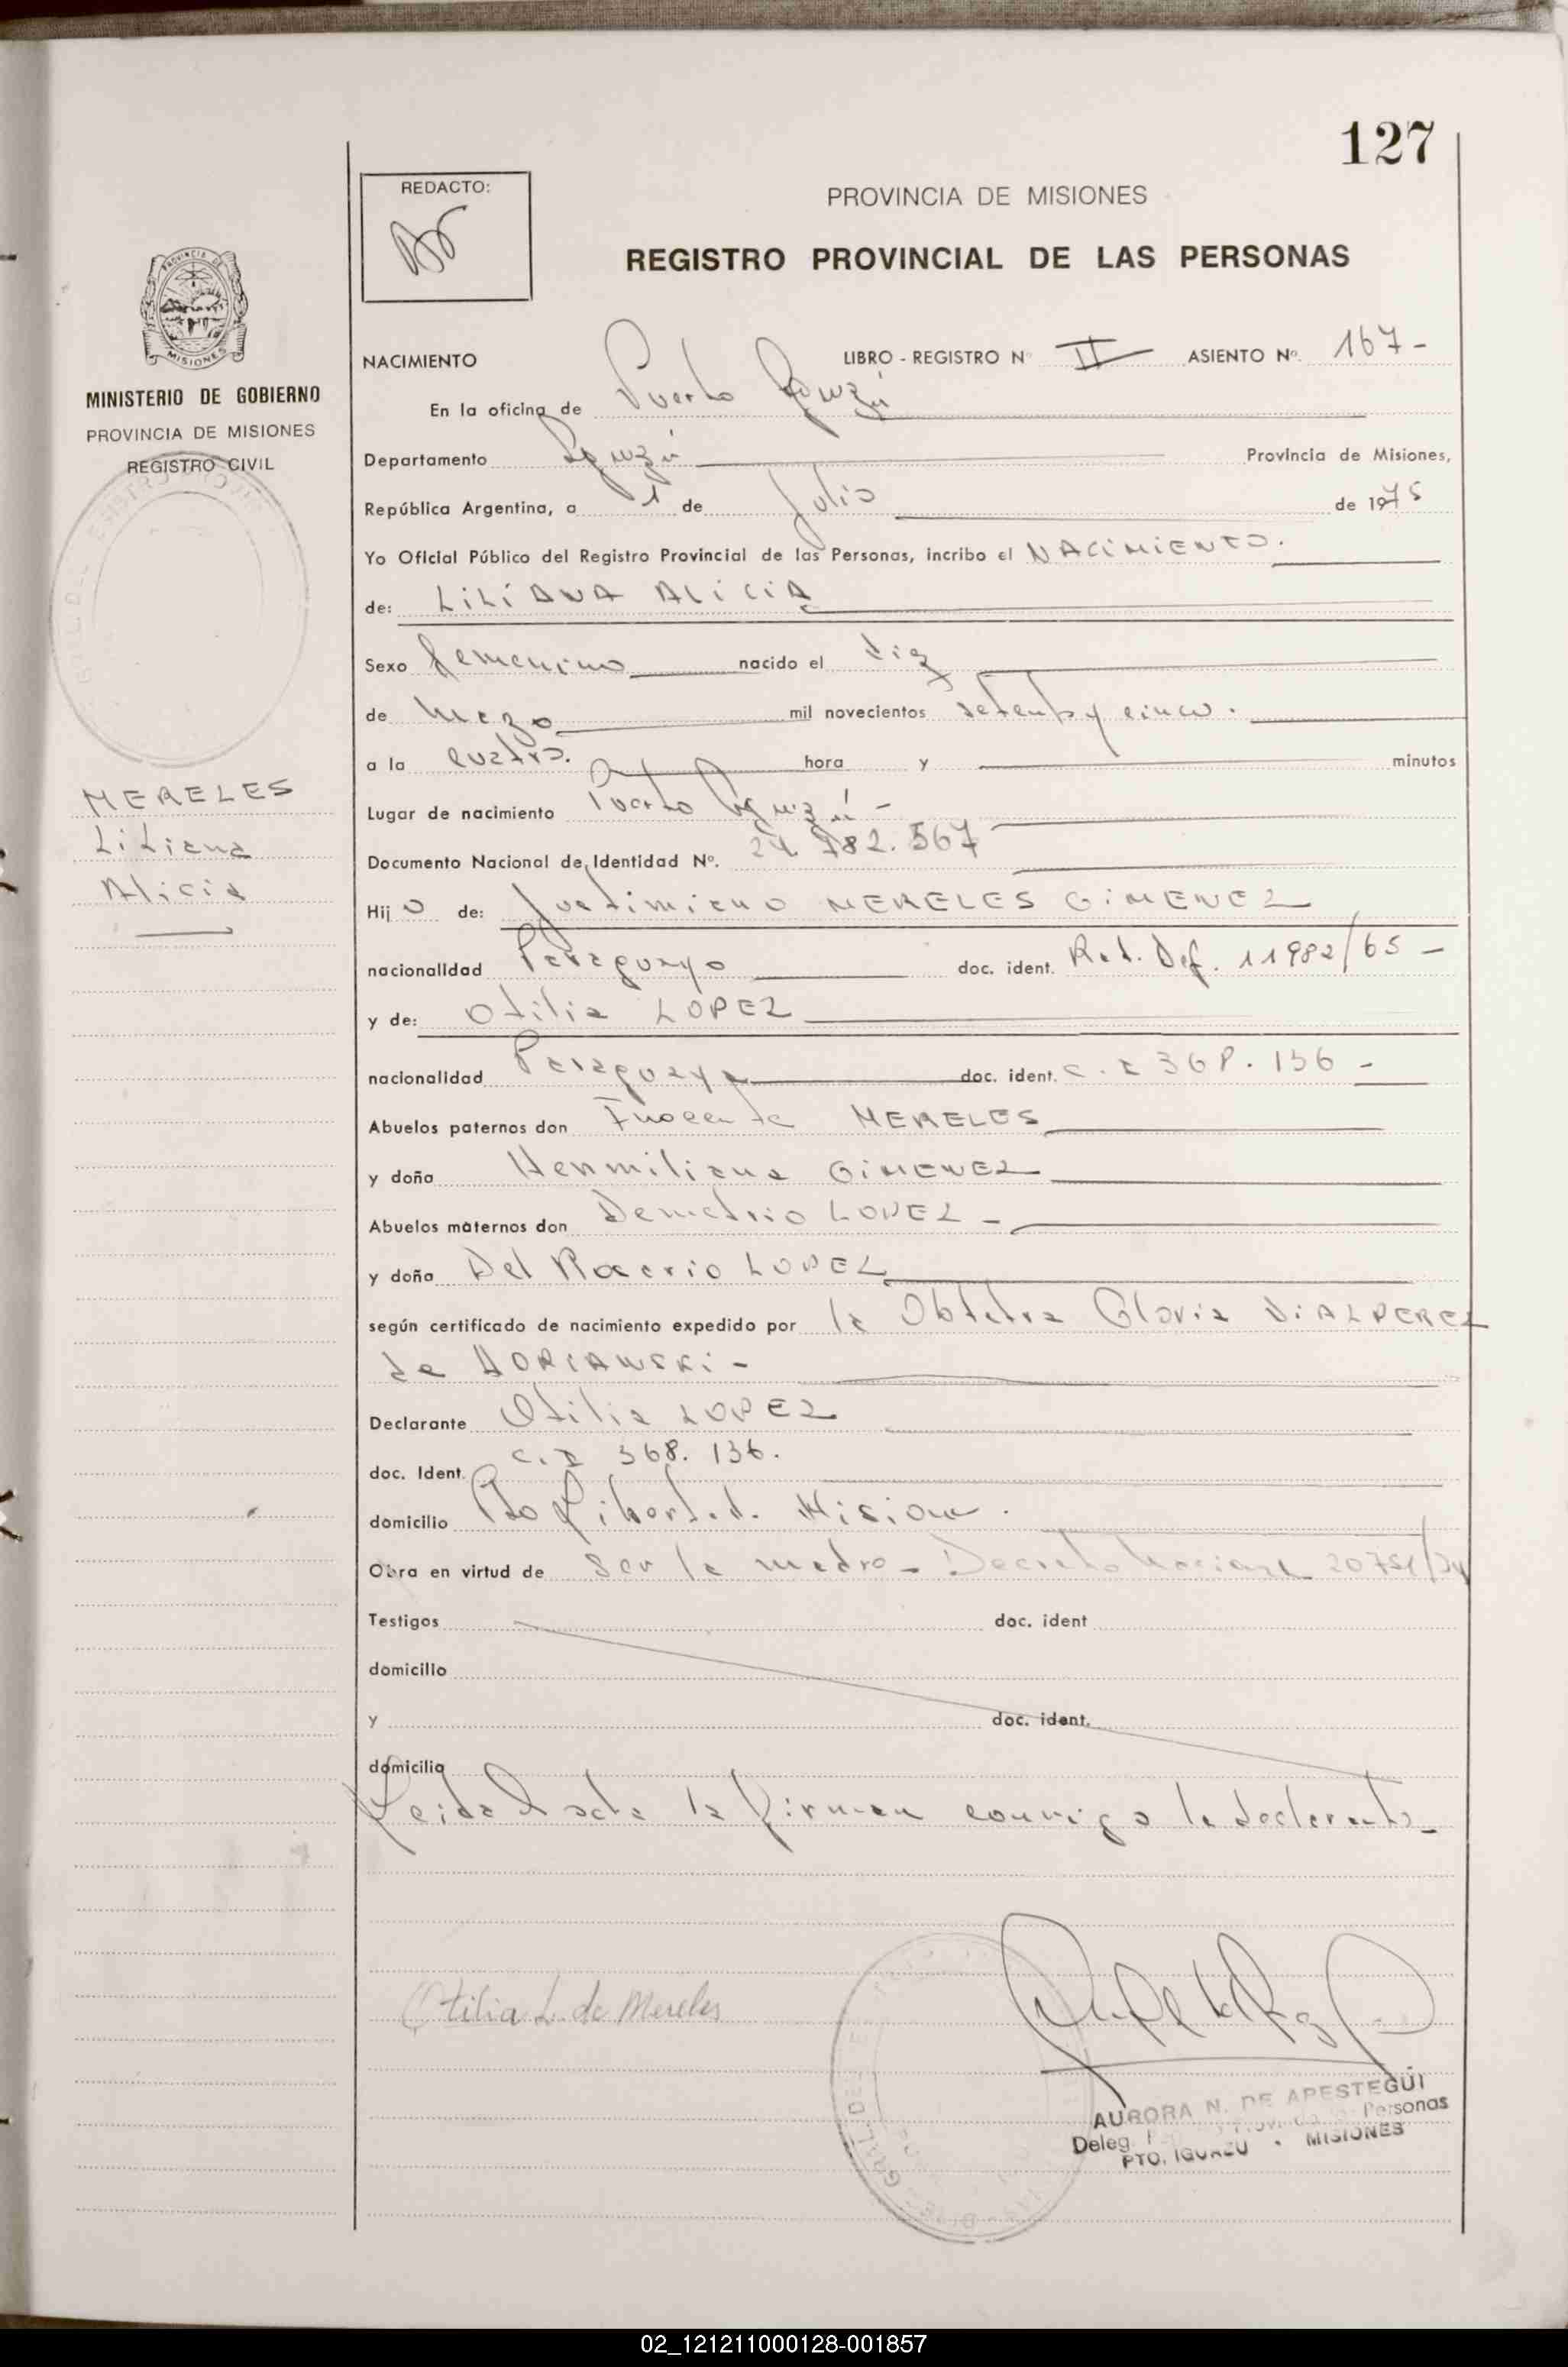 127
REDACTO:
PROVINCIA DE MISIONES
REGISTRO PROVINCIAL DE LAS PERSONAS
NACIMIENTO LIBRO - REGISTRO N° II ASIENTO Nº. 167-
En la oficina de Puerto Iguazú
Departamento Iguazú Provincia de Misiones,
República Argentina, a 1 de Julio de 1975
Yo Oficial Público del Registro Provincial de las Personas, incribo el NACIMIENTO.
de: LILIANA ALICIA
Sexo femenino nacido el diez
de Marzo mil novecientos setenta y cinco.
a la cuatro. hora y minutos
Lugar de nacimiento Puerto Iguazú -
Documento Nacional de Identidad Nº. 24.782.567
Hijo de: Justimiano MERELES GIMENEZ
nacionalidad Paraguayo doc. ident. Rad. Def. 11982/65 -
y de: Otilia LOPEZ
nacionalidad Paraguaya doc. ident. C. I 368.136 -
Abuelos paternos don Inocente MERELES
y doña Hermiliana GIMENEZ
Abuelos maternos don Demetrio LOPEZ -
y doña Del Rosario LOPEZ
según certificado de nacimiento expedido por la Obtetra Gloria DIAZ PEREZ
de
Declarante Otilia LOPEZ
doc. Ident. C. I 368.136.
domicilio Pto Libertad. Misiones.
Obra en virtud de ser la madre - Decreto Nacional 20751/
Testigos doc. ident
domicilio
y doc. ident.
domicilio
Leida el acta la firman conmigo la declarante -
Otilia L. de Mereles
AURORA N. DE APESTEGÜI
Deleg. Personas
PTO. IGUAZU - MISIONES
PROVINCIA DE
MISIONES
MINISTERIO DE GOBIERNO
PROVINCIA DE MISIONES
REGISTRO CIVIL
MERELES
Liliana
Alicia
02_121211000128-001857